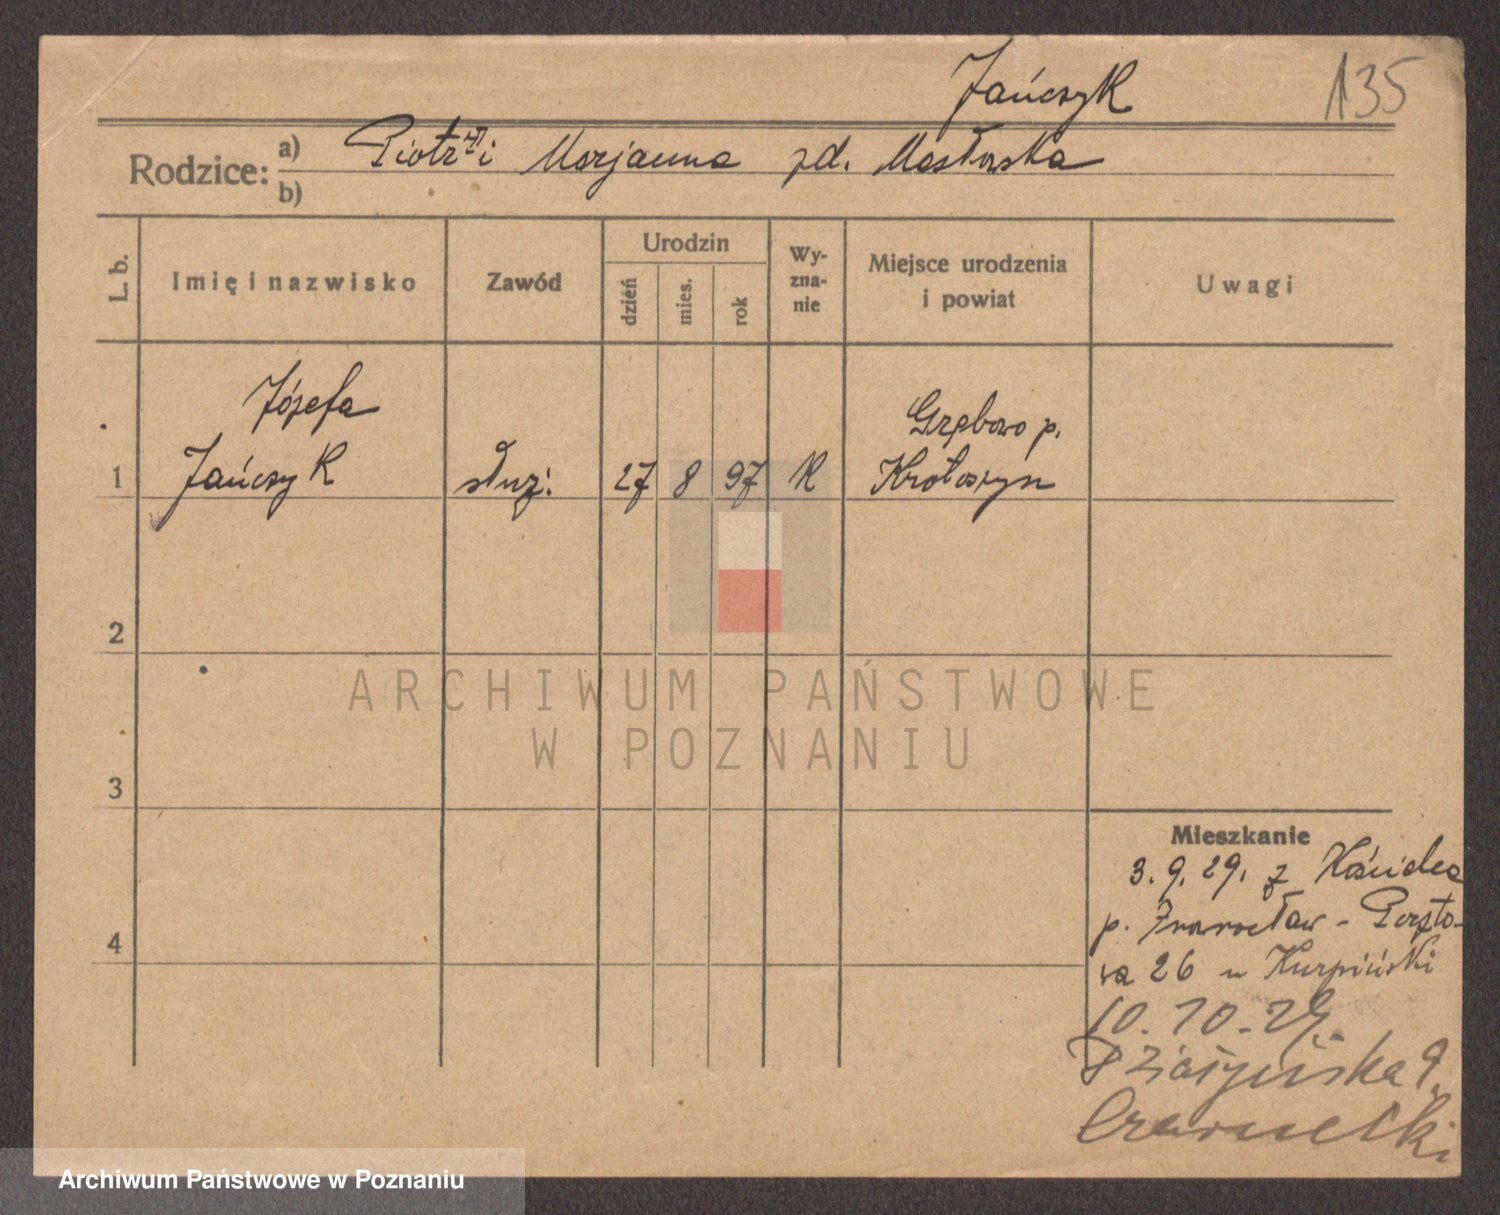 Jańczyk
135
Rodzice: a) Piotr i Marjanna zd. Masłowska
b)
L. b.
Imię i nazwisko
Zawód
Urodzin
dzień
mies.
rok
Wy-
zna-
nie
Miejsce urodzenia
i powiat
Uwagi
Józefa
Jańczyk
1
służ.
27
8
97
K
Grębowo p.
Krotoszyn
2
3
4
ARCHIWUM PAŃSTWOWE
W POZNANIU
Mieszkanie
3.9.29. z
p. Inowrocław - Poczto-
wa 26 u Kurpiński
10.10.29.
Działyńska 9
Czarnecki
Archiwum Państwowe w Poznaniu